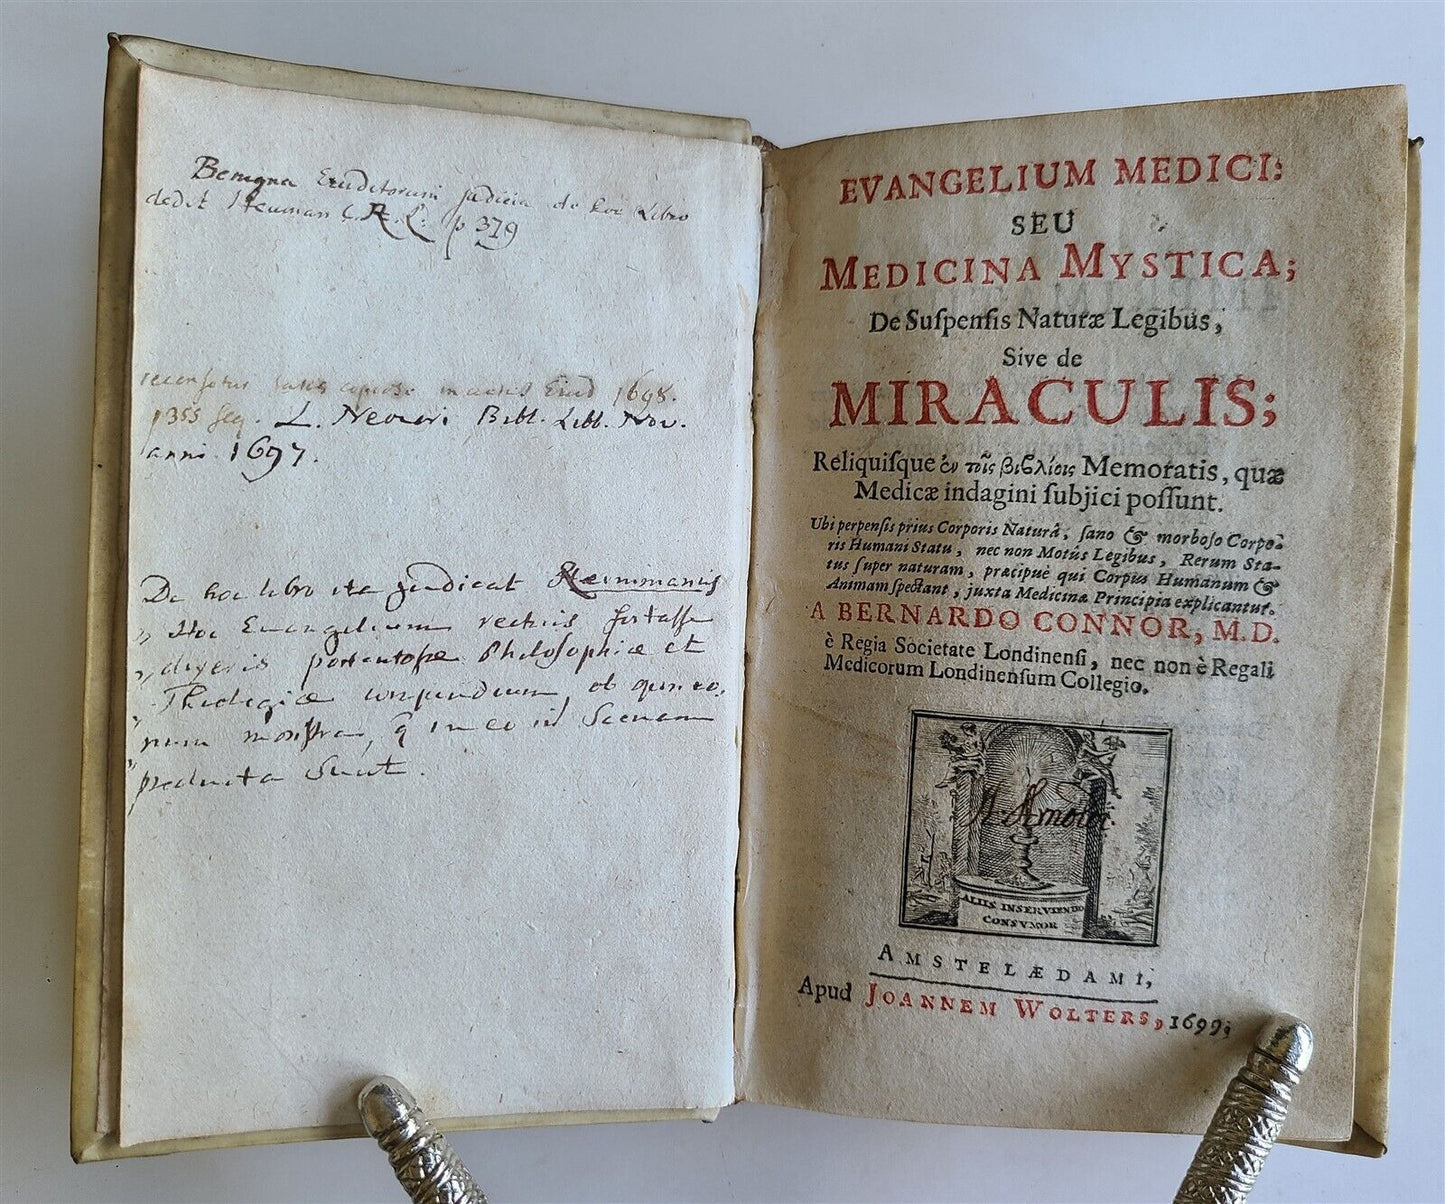 Benigna Eruditorum judicia de hoc Libro
dedit Heuman C. R. L. p 379
recensetur satis copiose in actis Erud 1698.
p 355 seq. L. Neocori Bibl. Libb. Nov.
anni 1697.
De hoc libro ita judicat Reimmannus
„ Hoc Evangelium rectius fortasse
„ dixeris portentosae Philosophiae et
„ Theologiae compendium, ob
„ num monstra, q in eo in Scenam
„ producta sunt.
EVANGELIUM MEDICI:
SEU
MEDICINA MYSTICA;
De Suſpenſis Naturæ Legibus,
Sive de
MIRACULIS;
Reliquiſque ἐν τοῖς βιβλίοις Memoratis, quæ
Medicæ indagini ſubjici poſſunt.
Ubi perpenſis prius Corporis Naturâ, ſano & morboſo Corpo-
ris Humani Statu, nec non Motûs Legibus, Rerum Sta-
tus ſuper naturam, præcipuè qui Corpus Humanum &
Animam ſpectant, juxta Medicinæ Principia explicantur.
A BERNARDO CONNOR, M.D.
è Regia Societate Londinenſi, nec non è Regali
Medicorum Londinenſum Collegio.
Arnoldi.
ALIIS INSERVIENDO
CONSVMOR
AMSTELÆDAMI,
Apud JOANNEM WOLTERS, 1699;